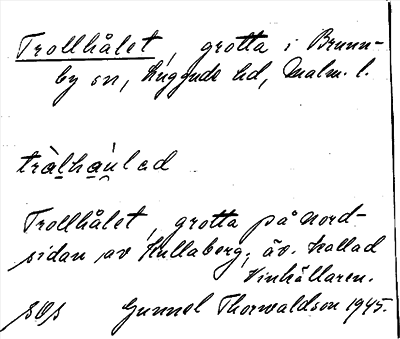 Trollhålet, grotta i Brunn-
by sn, Luggude hd, Malm. l.
tràlhạ́ulad
Trollhålet, grotta på nord-
sidan av Kullaberg, äv. kallad
Vinkällaren.
Gunnel Thorwaldson 1945.